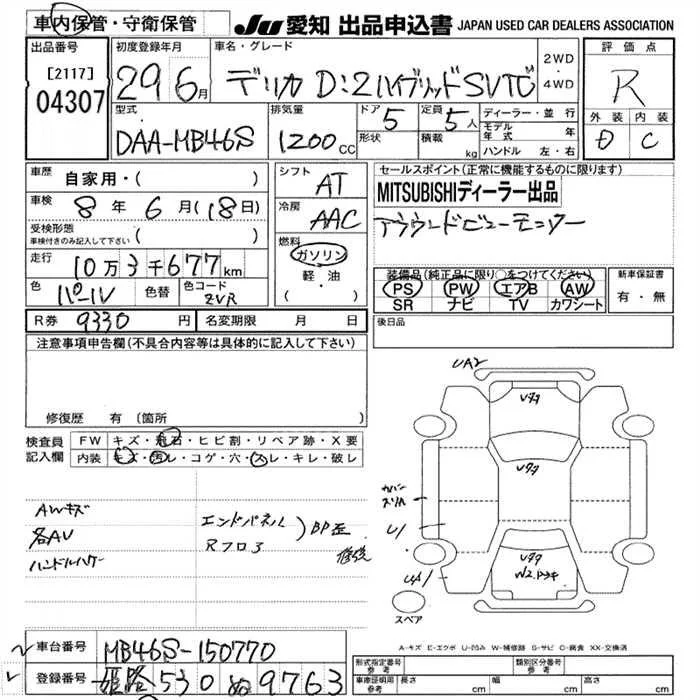 車内保管・守衛保管
JU 愛知 出品申込書 JAPAN USED CAR DEALERS ASSOCIATION
出品番号
[2117]
04307
初度登録年月
29 6月
車名・グレード
デリカD:2ハイブリッドSV
2WD
・
4WD
評価点
R
外装 内装
D C
型式
DAA-MB46S
排気量
1200cc
ドア 5
形状
定員 5人
積載 kg
ディーラー・並行
モデル年式 年
ハンドル 左・右
車歴
自家用・( )
車検 8年 6月(18日)
受検形態
車検付きのみ記入して下さい ( )
走行
10万3千677km
色 パール 色替 色コード ZVR
シフト
AT
冷房
AAC
燃料
ガソリン
・
軽・油
( )
セールスポイント(正常に機能するものに限ります)
MITSUBISHIディーラー出品
アラウンドビューモニター
装備品(純正品に限り○をつけてください)
PS PW エアB AW
SR ナビ TV カワシート
新車保証書
有・無
R券 9330円 名変期限 月 日
後日品
注意事項申告欄(不具合内容等は具体的に記入して下さい)
修復歴 有 (箇所 )
検査員
記入欄
FW キズ・飛石・ヒビ割・リペア跡・X要
内装 キズ・汚レ・コゲ・穴・スレ・キレ・破レ
AWキズ
各AU
ハンドルハゲ
エンドパネル
Rフロア
BP歪
修後
UA2
Uタタ
Uタタ
カバー
スリA
U1
UA1
Uタタ
W2
スペア
A-キズ E-エクボ U-凹み W-補修跡 S-サビ C-腐食 XX-交換済
車台番号 MB46S-150770
登録番号 姫路 530 ぬ 9763
形式指定番号
参考
類別区分番号
参考
車庫証明用
参考
長さ cm
幅 cm
高さ cm